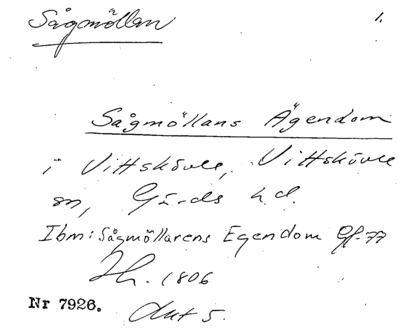 Sågmöllan 1.
Sågmöllans Ägendom
i Vittskövle, Vittskövle
sn, Gärds hd.
Ibm: Sågmöllarens Egendom Gf-77
Jh. 1806
Nr 7926. Akt 5.